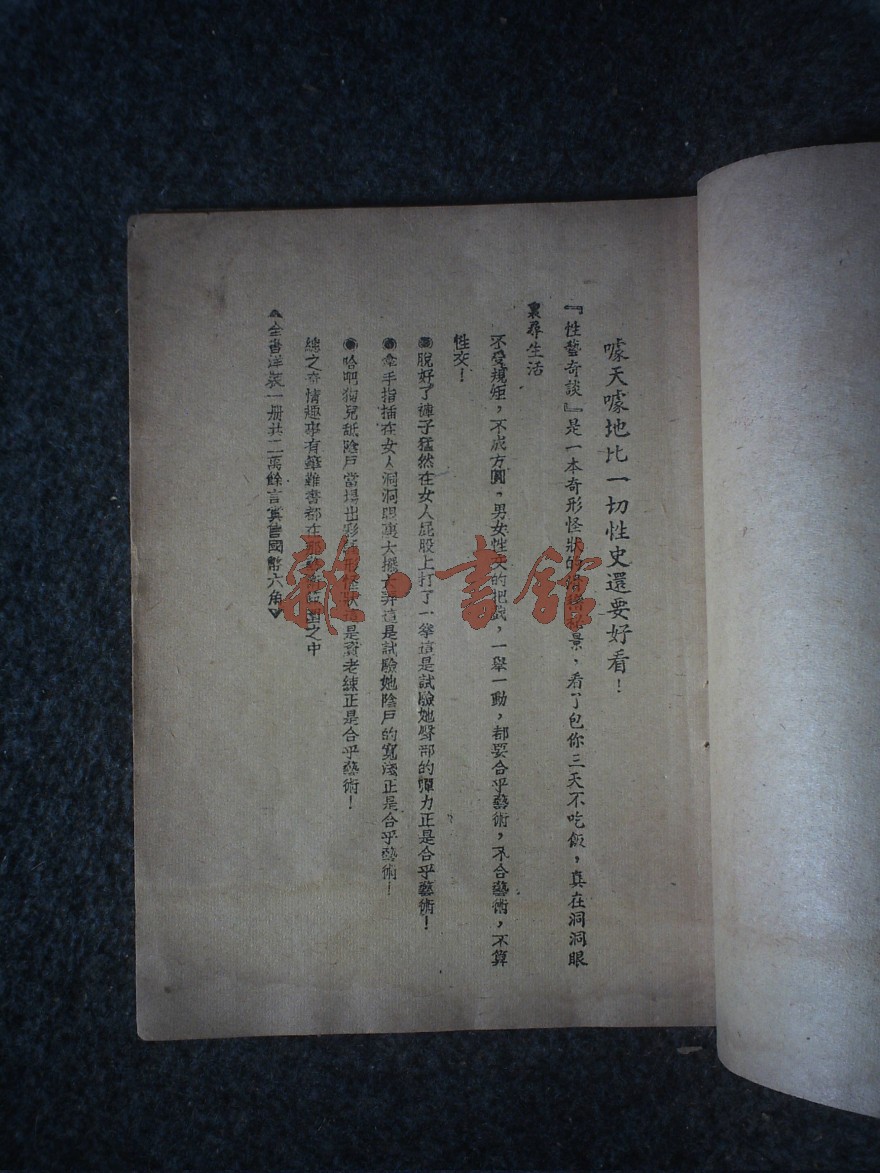 噱天噱地比一切性史還要好看！
『性藝奇談』是一本奇形怪狀的滑稽秘景，看了包你三天不吃飯，真在洞洞眼
裏尋生活
不受規矩，不成方圓，男女性交的把戲，一舉一動，都要合乎藝術，不合藝術，不算
性交！
●脫好了褲子猛然在女人屁股上打了一拳這是試驗她臀部的彈力正是合乎藝術！
●拿手指插在女人洞洞眼裏大擺大弄這是試驗她陰戶的寬淺正是合乎藝術！
●哈吧狗兒舐陰戶當場出彩 形怪狀 是 老練正是合乎藝術！
總之奇情趣事有筆難書都在那 範圍之中
▲全書洋裝一册共二萬餘言實售國幣六角▼
雜·書館